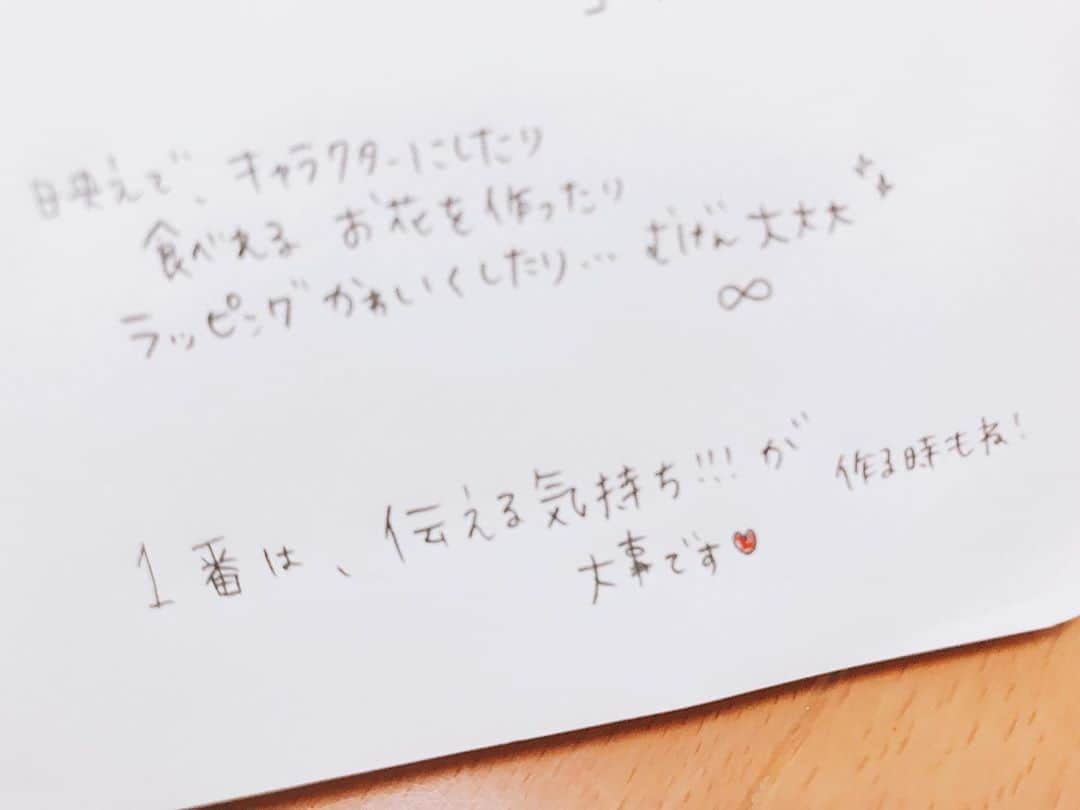 映えで、キャラクターにしたり
食べれる お花を作ったり
ラッピングかわいくしたり… むげん大大大
∞
1番は、伝える気持ち!!!が 作る時もね!
大事です